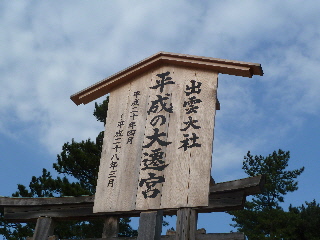 出雲大社
平成の大遷宮
平成二十年四月
～平成二十八年三月